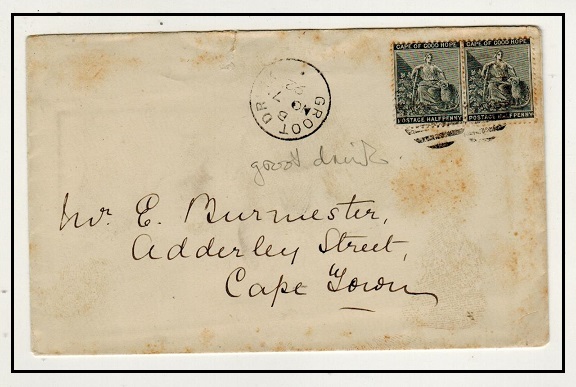 CAPE OF GOOD HOPE CAPE OF GOOD HOPE
POSTAGE HALFPENNY POSTAGE HALFPENNY
GROOT DR
groot drink
Mr. E. Burmester,
Adderley Street,
Cape Town